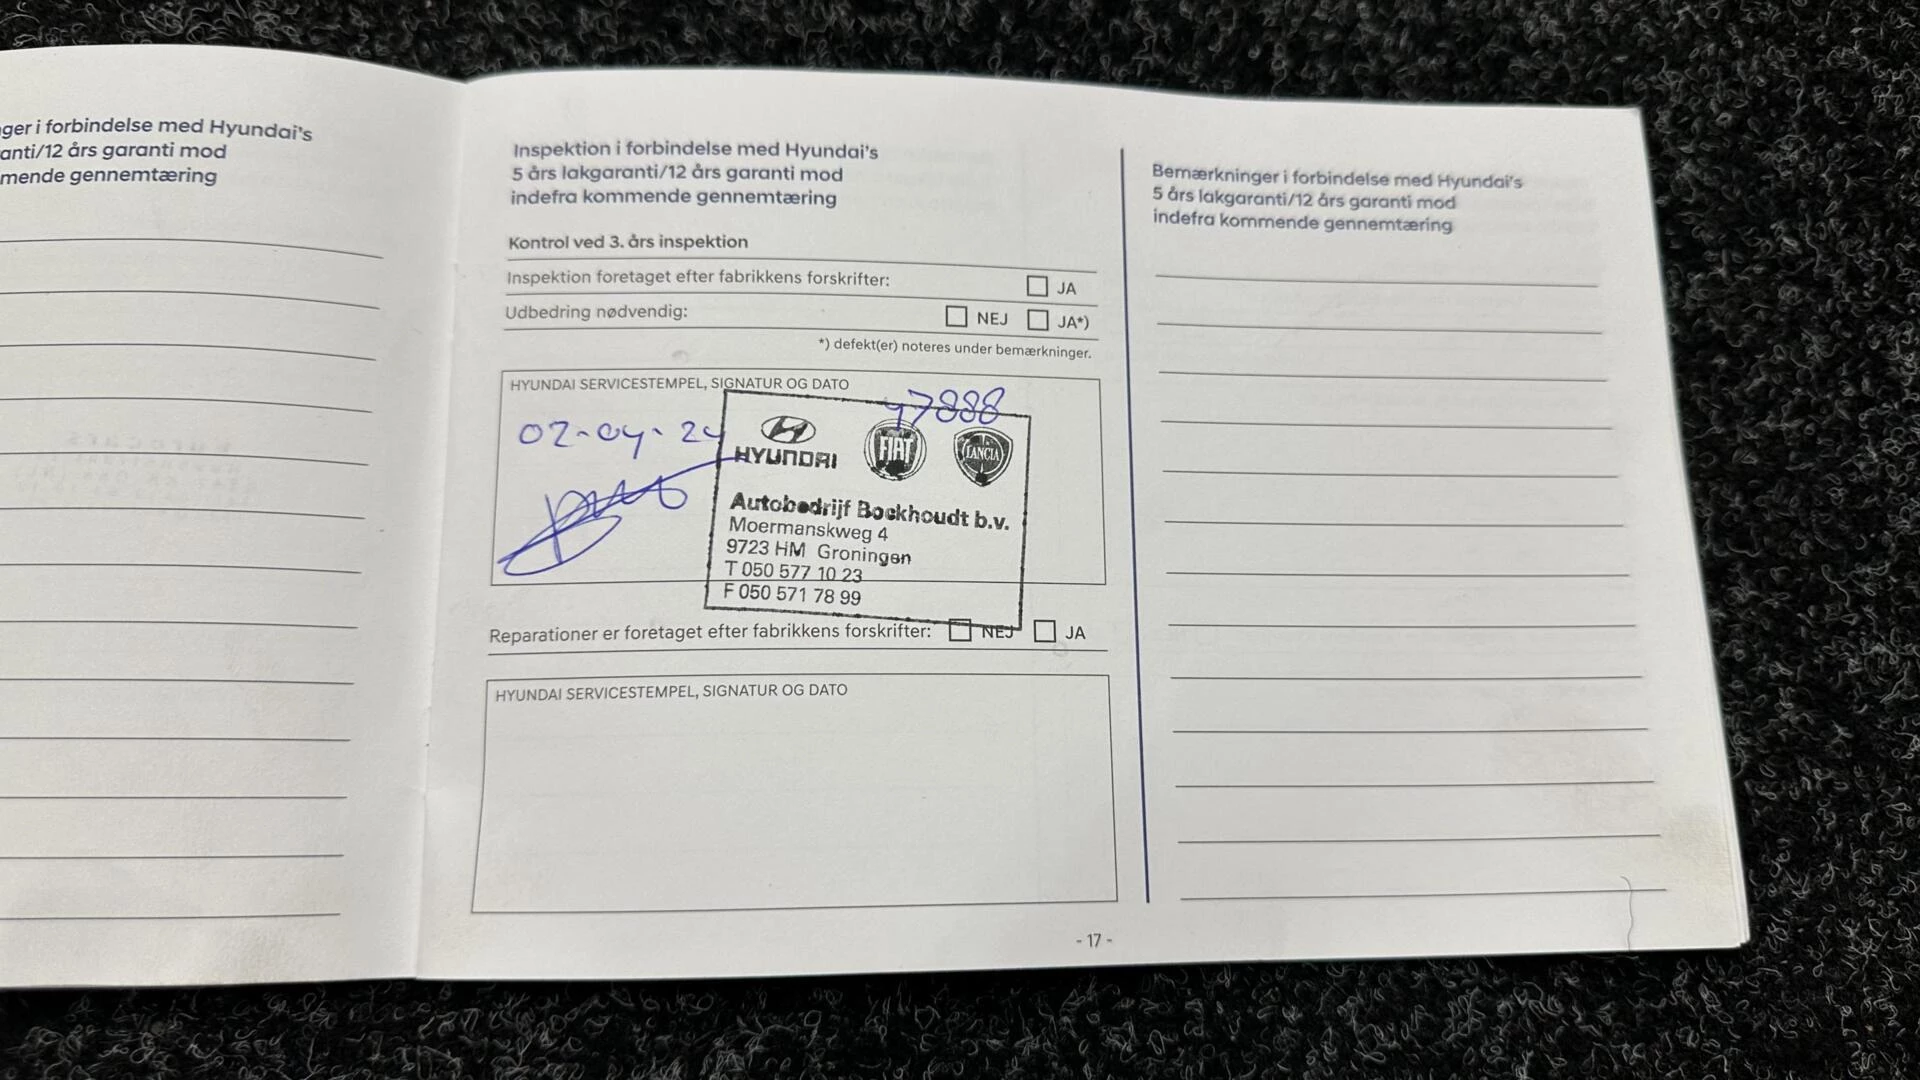 ger i forbindelse med Hyundai's
anti/12 års garanti mod
mende gennemtæring
Inspektion i forbindelse med Hyundai's
5 års lakgaranti/12 års garanti mod
indefra kommende gennemtæring
Kontrol ved 3. års inspektion
Inspektion foretaget efter fabrikkens forskrifter: JA
Udbedring nødvendig: NEJ JA*)
*) defekt(er) noteres under bemærkninger.
HYUNDAI SERVICESTEMPEL, SIGNATUR OG DATO
47888
02-04-24
HYUNDAI FIAT LANCIA
Autobedrijf Boekhoudt b.v.
Moermanskweg 4
9723 HM Groningen
T 050 577 10 23
F 050 571 78 99
Reparationer er foretaget efter fabrikkens forskrifter: NEJ JA
HYUNDAI SERVICESTEMPEL, SIGNATUR OG DATO
- 17 -
Bemærkninger i forbindelse med Hyundai's
5 års lakgaranti/12 års garanti mod
indefra kommende gennemtæring